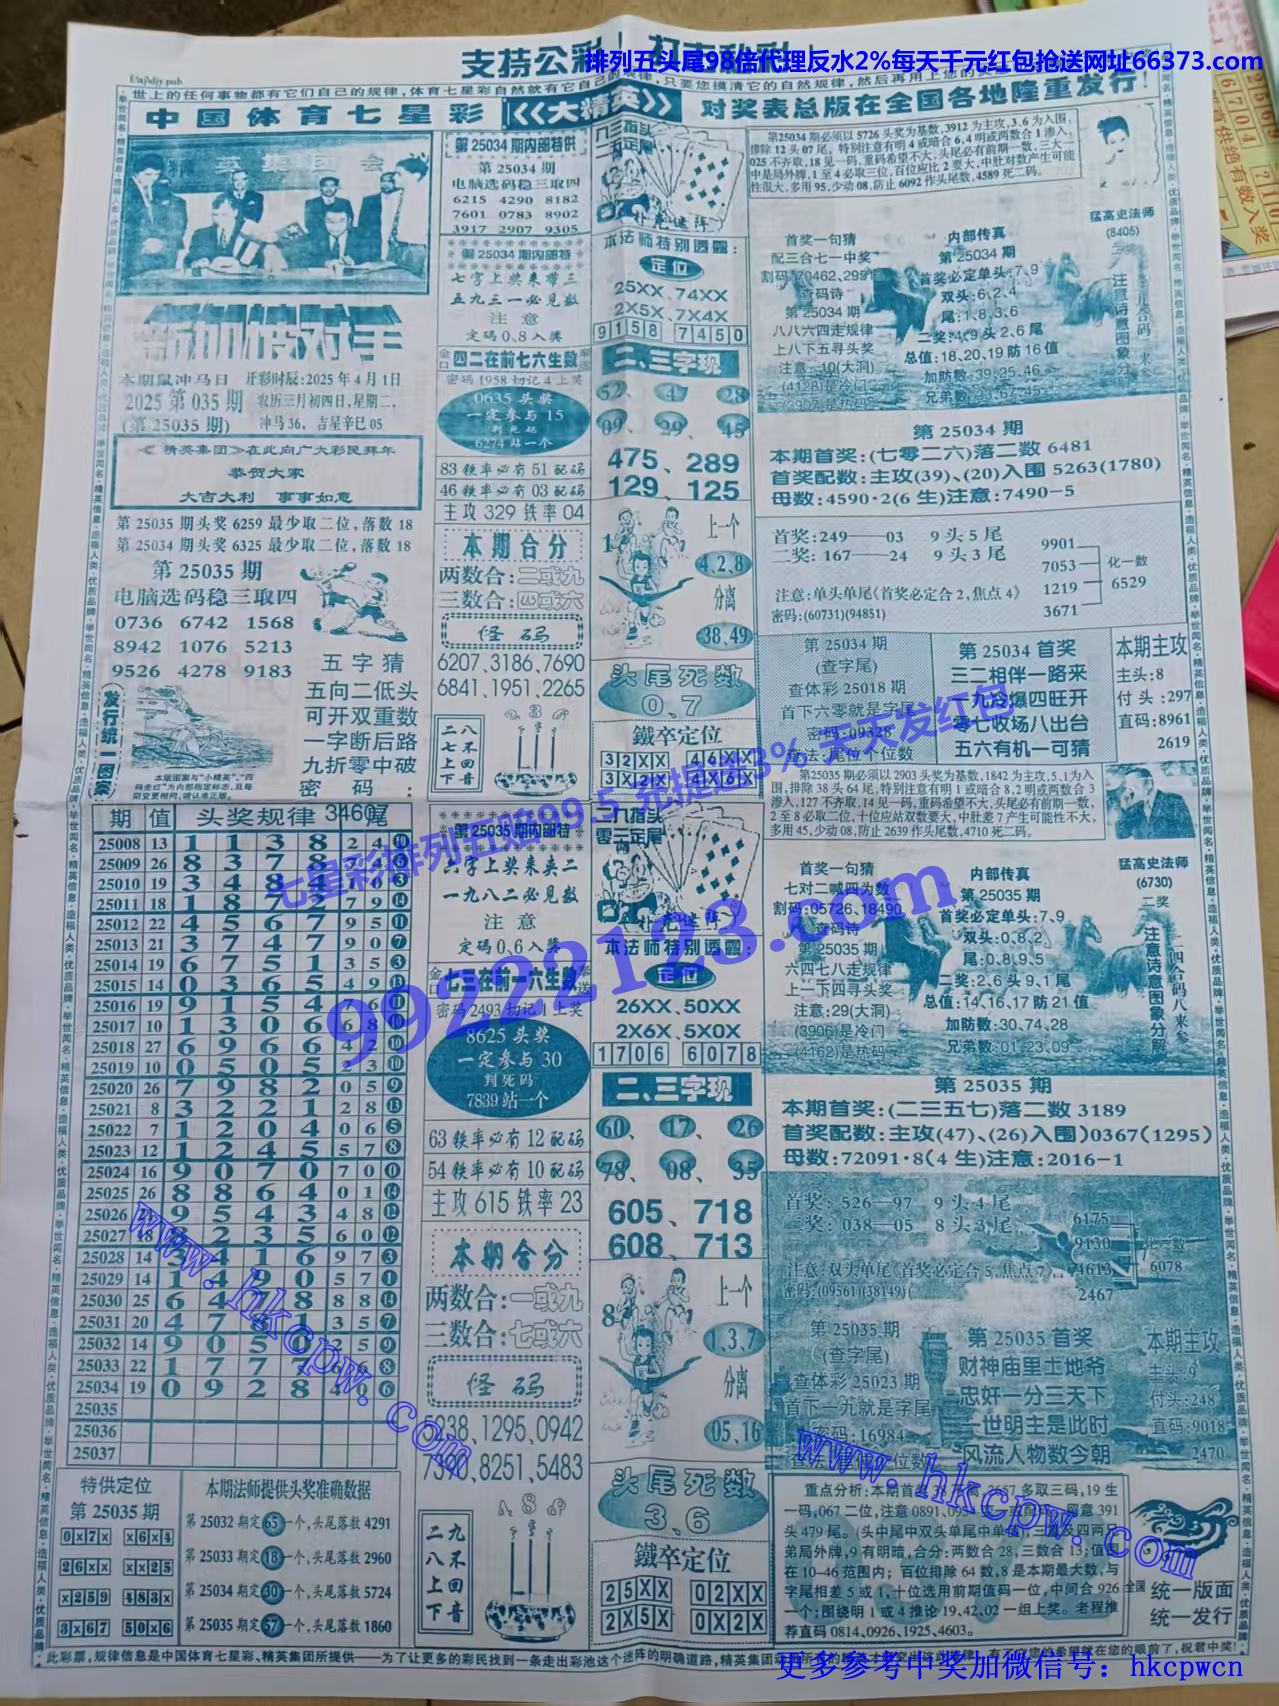 支持公彩！打击私彩！
排列五头尾98倍代理反水2%每天千元红包抢送网址66373.com
世上的任何事物都有它们自己的规律,体育七星彩自然就有它自己的规律,只要您摸清它的自然规律,然后再用上您的
中国体育七星彩《大精英》对奖表总版在全国各地隆重发行!
本期鼠冲马日 开彩时辰:2025年4月1日
2025 第 035 期 农历三月初四日,星期二,
(第 25035 期) 冲马36, 吉星辛巳05
《精英集团》在此向广大彩民拜年
恭贺大家
大吉大利 事事如意
第 25035 期头奖 6259 最少取二位,落数 18
第 25034 期头奖 6325 最少取二位,落数 18
第 25035 期
电脑选码稳三取四
0736 6742 1568
8942 1076 5213
9526 4278 9183
五字猜
五向二低头
可开双重数
一字断后路
九折零中破
密码:
34607
发行统一图案
本版图案与“小精英”、“四
码走红”为内部指定标志,且每
期变更相网,请认准正版.
第 25034 期内部特供
第 25034 期
电脑选码稳三取四
6215 4290 8182
7601 0783 8902
3917 2907 9305
第 25034 期内部特
七字上奖来带三
五九三一必见数
注意
定码 0、8 入奖
四二在前七六生数
密码 1958 切记 4 上奖
0635 头奖
一定参与 15
判死码
6274 站一个
83 铁率必有 51 配码
46 铁率必有 03 配码
主攻 329 铁率 04
本期合分
两数合:二或九
三数合:四或六
怪码
6207、3186、7690
6841、1951、2265
二七上下
八不回音
扑克迷阵
本法师特别透露:
定位
25XX、74XX
2X5X、7X4X
9158 7450
二、三字现
52、47、28
09、29、45
475、289
129、125
上一个
4,2,8
分离
38,49
头尾死数
0、7
鐵卒定位
32XX 46XX
3X2X 4X6X
第25034 期必须以 5726 头奖为基数,3912 为主攻,3、6 为入围,
排除 12 头 07 尾, 特别注意有明 4 或暗合 6,4 明或两数合 1 渗入,
025 不齐取,18 见一码,重码希望不大,头尾必有前期一数,三大一
中是局外牌,1 至 4 必取三位,百位应比 2 要大,中肚对数产生可能
性很大,多用 95,少动 08,防止 6092 作头尾数,4589 死二码.
猛高史法师
(8405)
首奖一句猜
配三合七一中奖
割码:70462,2991
查码诗
第 25034 期
八八六四走规律
上八下五寻头奖
注意:10(大洞)
(4128)是冷门
(3907)是热码
内部传真
第 25034 期
首奖必定单头:7、9
双头:6、2、4
尾:1、8、3、6
二奖:4、9 头 2、6 尾
总值:18、20、19 防 16 值
加防数:39、25、46
兄弟数:39、67、45
注意诗意图象分解
第 25034 期
本期首奖:(七零二六)落二数 6481
首奖配数:主攻(39)、(20)入围 5263(1780)
母数:4590·2(6 生)注意:7490-5
首奖:249——03 9 头 5 尾
二奖:167——24 9 头 3 尾
注意:单头单尾《首奖必定合 2,焦点 4》
密码:(60731)(94851)
9901
7053
1219
3671
化一数
6529
第 25034 期
(查字尾)
查体彩 25018 期
首下六零就是字尾
密码:09328
查法:尾位个位数
第 25034 首奖
三二相伴一路来
一九冷爆四旺开
零七收场八出台
五六有机一可猜
本期主攻
主头:8
付头:297
直码:8961
2619
期 值 头奖规律 尾
25008 13 1 1 3 8 2 4 10
25009 26 8 3 7 8
25010 19 3 4 8 4
25011 18 1 8 7 2 7 9 14
25012 22 4 5 6 7 9 5 11
25013 21 3 7 4 7 9 0 7
25014 19 6 7 5 1 3 5 3
25015 14 0 3 6 5 4 9
25016 19 9 1 5 4
25017 10 1 3 0 6 6 8
25018 27 6 9 6 6
25019 10 0 5 0 5 2 3 10
25020 26 7 9 8 2 0 5 9
25021 8 3 2 2 1 2 8 13
25022 7 1 2 0 4 0 6 5
25023 12 1 2 4 5 5 7 8
25024 16 9 0 7 0 7 0 0
25025 26 8 8 6 4 0 1 14
25026 21 9 5 4 3 4 8 12
25027 18 8 2 3 5 6 0 12
25028 14 3 4 1 6 9 7 3
25029 14 1 4 9 0 5 7 1
25030 25 6 4 7 8 8 8 14
25031 20 4 7 8 1 3 5 7
25032 14 9 0 5 0
25033 22 1 7 7 7 6 6 8
25034 19 0 9 2 8 4 0 6
25035
25036
25037
特供定位
第 25035 期
0x7x x6x4
26xx xx25
x259 483x
3x67 50x6
本期法师提供头奖准确数据
第 25032 期定 65 一个,头尾落数 4291
第 25033 期定 18 一个,头尾落数 2960
第 25034 期定 30 一个,头尾落数 5724
第 25035 期定 57 一个,头尾落数 1860
第 25035 期内部特
六字上奖来卖二
一九八二必见数
注意
定码 0、6 入奖
七三在前一六生数
密码 2493 切记 1 上奖
8625 头奖
一定参与 30
判死码
7839 站一个
63 铁率必有 12 配码
54 铁率必有 10 配码
主攻 615 铁率 23
本期合分
两数合:一或九
三数合:七或六
怪码
5238、1295、0942
7390、8251、5483
二八上下
九不回音
扑克迷阵
本法师特别透露:
定位
26XX、50XX
2X6X、5X0X
1706 6078
二、三字现
60、17、26
78、08、35
605、718
608、713
上一个
1,3,7
分离
05,16
头尾死数
3、6
鐵卒定位
25XX 02XX
2X5X 0X2X
第25035 期必须以 2903 头奖为基数,1842 为主攻,5、1 为入
围,排除 38 头 64 尾,特别注意有明 1 或暗合 8,2 明或两数合 3
渗入,127 不齐取,14 见一码,重码希望不大,头尾必有前期一数,
2 至 8 必取二位,十位应站双数要大,中肚差 7 产生可能性不大,
多用 45,少动 08,防止 2639 作头尾数,4710 死二码.
猛高史法师
(6730)
二奖
首奖一句猜
七对二喊四为数
割码:05726,18490
查码诗
第 25035 期
六四七八走规律
上一下四寻头奖
注意:29(大洞)
(3906)是冷门
(4162)是热码
内部传真
第 25035 期
首奖必定单头:7、9
双头:0、8、2
尾:0、8、9、5
二奖:2、6 头 9、1 尾
总值:14、16、17 防 21 值
加防数:30、74、28
兄弟数:01、23、09
二四合码八来参
注意诗意图象分解
第 25035 期
本期首奖:(二三五七)落二数 3189
首奖配数:主攻(47)、(26)入围)0367(1295)
母数:72091·8(4 生)注意:2016-1
首奖:526—97 9 头 4 尾
二奖:038—05 8 头 3 尾
注意:双头单尾《首奖必定合 5,焦点 7》
密码:(09561)(38149)
6175
9130
4613
2467
化一数
6078
第 25035 期
(查字尾)
查体彩 25023 期
首下一九就是字尾
密码:16984
第 25035 首奖
财神庙里土地爷
忠奸一分三天下
一世明主是此时
风流人物数今朝
本期主攻
主头:9
付头:248
直码:9018
2470
头 479 尾。(头中尾中双头单尾中单
弟局外牌,9 有明暗,合分:两数合 28,三数合 13;值
在 10-46 范围内; 百位排除 64 数,8 是本期最大数,与
字尾相差 5 或 1,十位选用前期值码一位,中间合 926
一个;围绕明 1 或 4 推论 19、42、02 一组上奖。老程推
荐直码 0814、0926、1925、4603。
全国
统一版面
统一发行
此彩票,规律信息是中国体育七星彩、精英集团所提供——为了让更多的彩民找到一条走出彩池这个迷阵的明确道路,精英集团
七星彩排列五赔99.5 充提送3% 天天发红包
99222123.com
www.hkcpw.com
www.hkcpw.com
更多参考中奖加微信号: hkcpwcn